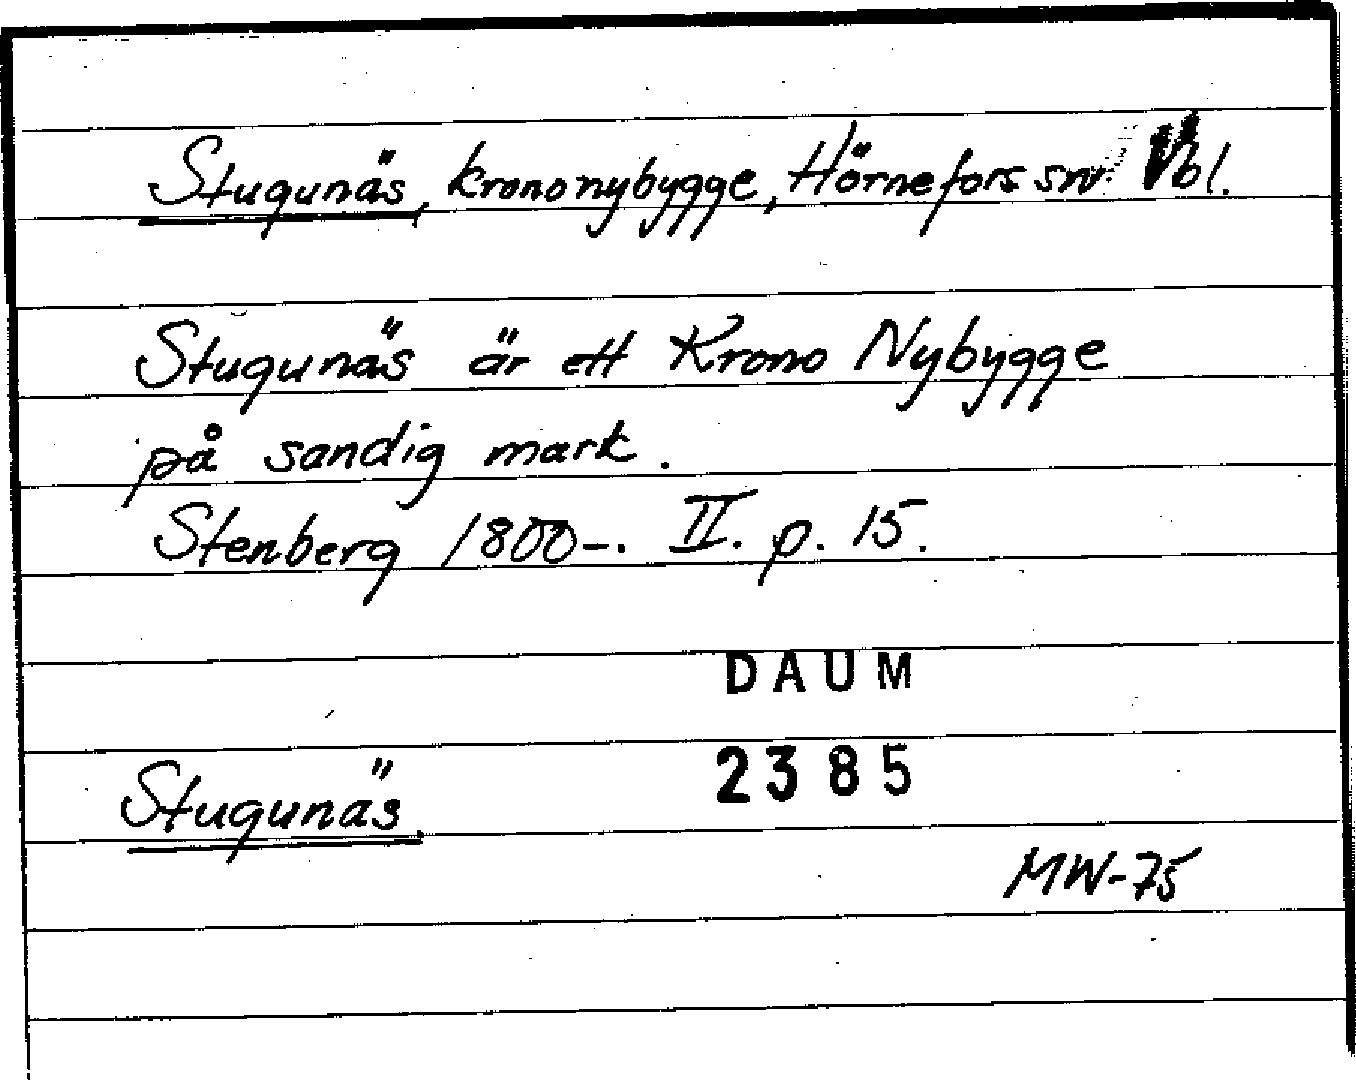 Stugunäs, krononybygge, Hörnefors sn. Vbl.
Stugunäs är ett Krono Nybygge
på sandig mark.
Stenberg 1800-. II. p. 15.
DAUM
2385
Stugunäs.
MW-75